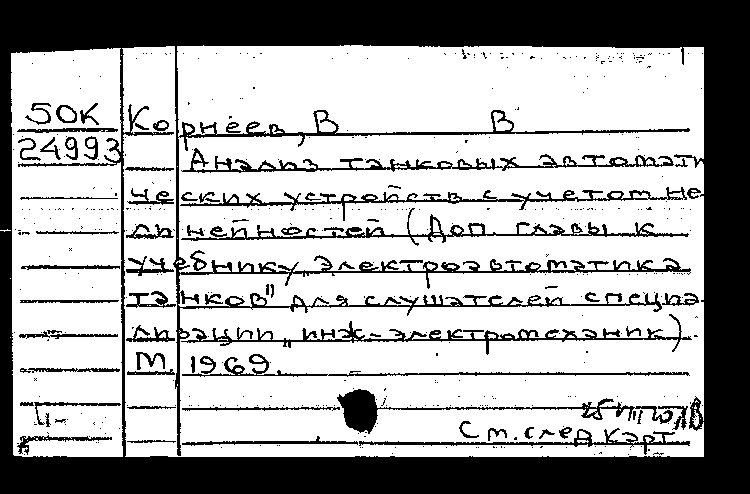 50К
24993
Корнеев, В В
Анализ танковых автомати
ческих устройств с учетом не
линейностей (Доп. главы к
учебнику „Электроавтоматика
танков" для слушателей специа
лизации „инж-электромеханик)
М. 1969.
См. след карт